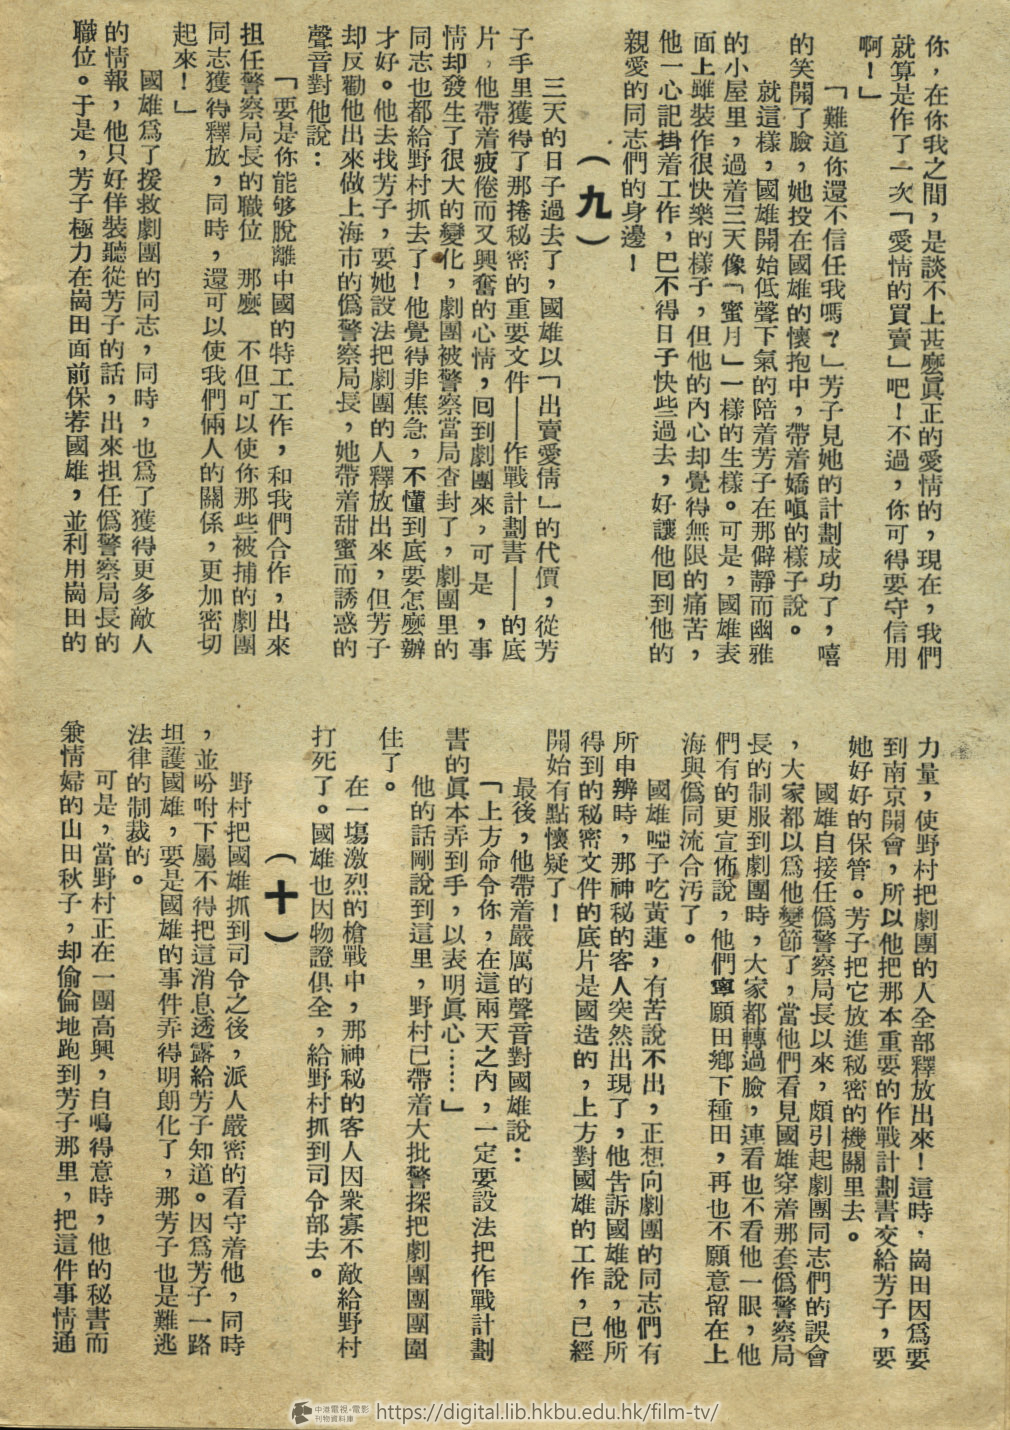 你，在你我之間，是談不上甚麽眞正的愛情的，現在，我們
就算是作了一次「愛情的買賣」吧！不過，你可得要守信用
啊！」
「難道你還不信任我嗎？」芳子見她的計劃成功了，嘻
的笑開了臉，她投在國雄的懷抱中，帶着嬌嗔的樣子說。
就這樣，國雄開始低聲下氣的陪着芳子在那僻靜而幽雅
的小屋里，過着三天像「蜜月」一樣的生樣。可是，國雄表
面上雖裝作很快樂的樣子，但他的內心却覺得無限的痛苦，
他一心記掛着工作，巴不得日子快些過去，好讓他囘到他的
親愛的同志們的身邊！
（九）
三天的日子過去了，國雄以「出賣愛情」的代價，從芳
子手里獲得了那捲秘密的重要文件——作戰計劃書——的底
片，他帶着疲倦而又興奮的心情，囘到劇團來，可是，事
情却發生了很大的變化，劇團被警察當局查封了，劇團里的
同志也都給野村抓去了！他覺得非焦急，不懂到底要怎麽辦
才好。他去找芳子，要她設法把劇團的人釋放出來，但芳子
却反勸他出來做上海市的僞警察局長，她帶着甜蜜而誘惑的
聲音對他說：
「要是你能够脫離中國的特工工作，和我們合作，出來
担任警察局長的職位　那麽　不但可以使你那些被捕的劇團
同志獲得釋放，同時，還可以使我們倆人的關係，更加密切
起來！」
國雄爲了援救劇團的同志，同時，也爲了獲得更多敵人
的情報，他只好佯裝聽從芳子的話，出來担任僞警察局長的
職位。于是，芳子極力在崗田面前保荐國雄，並利用崗田的
力量，使野村把劇團的人全部釋放出來！這時，崗田因爲要
到南京開會，所以他把那本重要的作戰計劃書交給芳子，要
她好好的保管。芳子把它放進秘密的機關里去。
國雄自接任僞警察局長以來，頗引起劇團同志們的誤會
，大家都以爲他變節了，當他們看見國雄穿着那套僞警察局
長的制服到劇團時，大家都轉過臉，連看也不看他一眼，他
們有的更宣佈說，他們寧願田鄕下種田，再也不願意留在上
海與僞同流合汚了。
國雄啞子吃黃蓮，有苦說不出，正想向劇團的同志們有
所申辨時，那神秘的客人突然出現了，他告訴國雄說，他所
得到的秘密文件的底片是國造的，上方對國雄的工作，已經
開始有點懷疑了！
最後，他帶着嚴厲的聲音對國雄說：
「上方命令你，在這兩天之內，一定要設法把作戰計劃
書的眞本弄到手，以表明眞心……」
他的話剛說到這里，野村已帶着大批警探把劇團團團圍
住了。
在一塲激烈的槍戰中，那神秘的客人因衆寡不敵給野村
打死了。國雄也因物證俱全，給野村抓到司令部去。
（十）
野村把國雄抓到司令之後，派人嚴密的看守着他，同時
，並吩咐下屬不得把這消息透露給芳子知道。因爲芳子一路
坦護國雄，要是國雄的事件弄得明朗化了，那芳子也是難逃
法律的制裁的。
可是，當野村正在一團高興，自鳴得意時，他的秘書而
兼情婦的山田秋子，却偷偷地跑到芳子那里，把這件事情通
中港電視·電影
刊物資料庫
https://digital.lib.hkbu.edu.hk/film-tv/